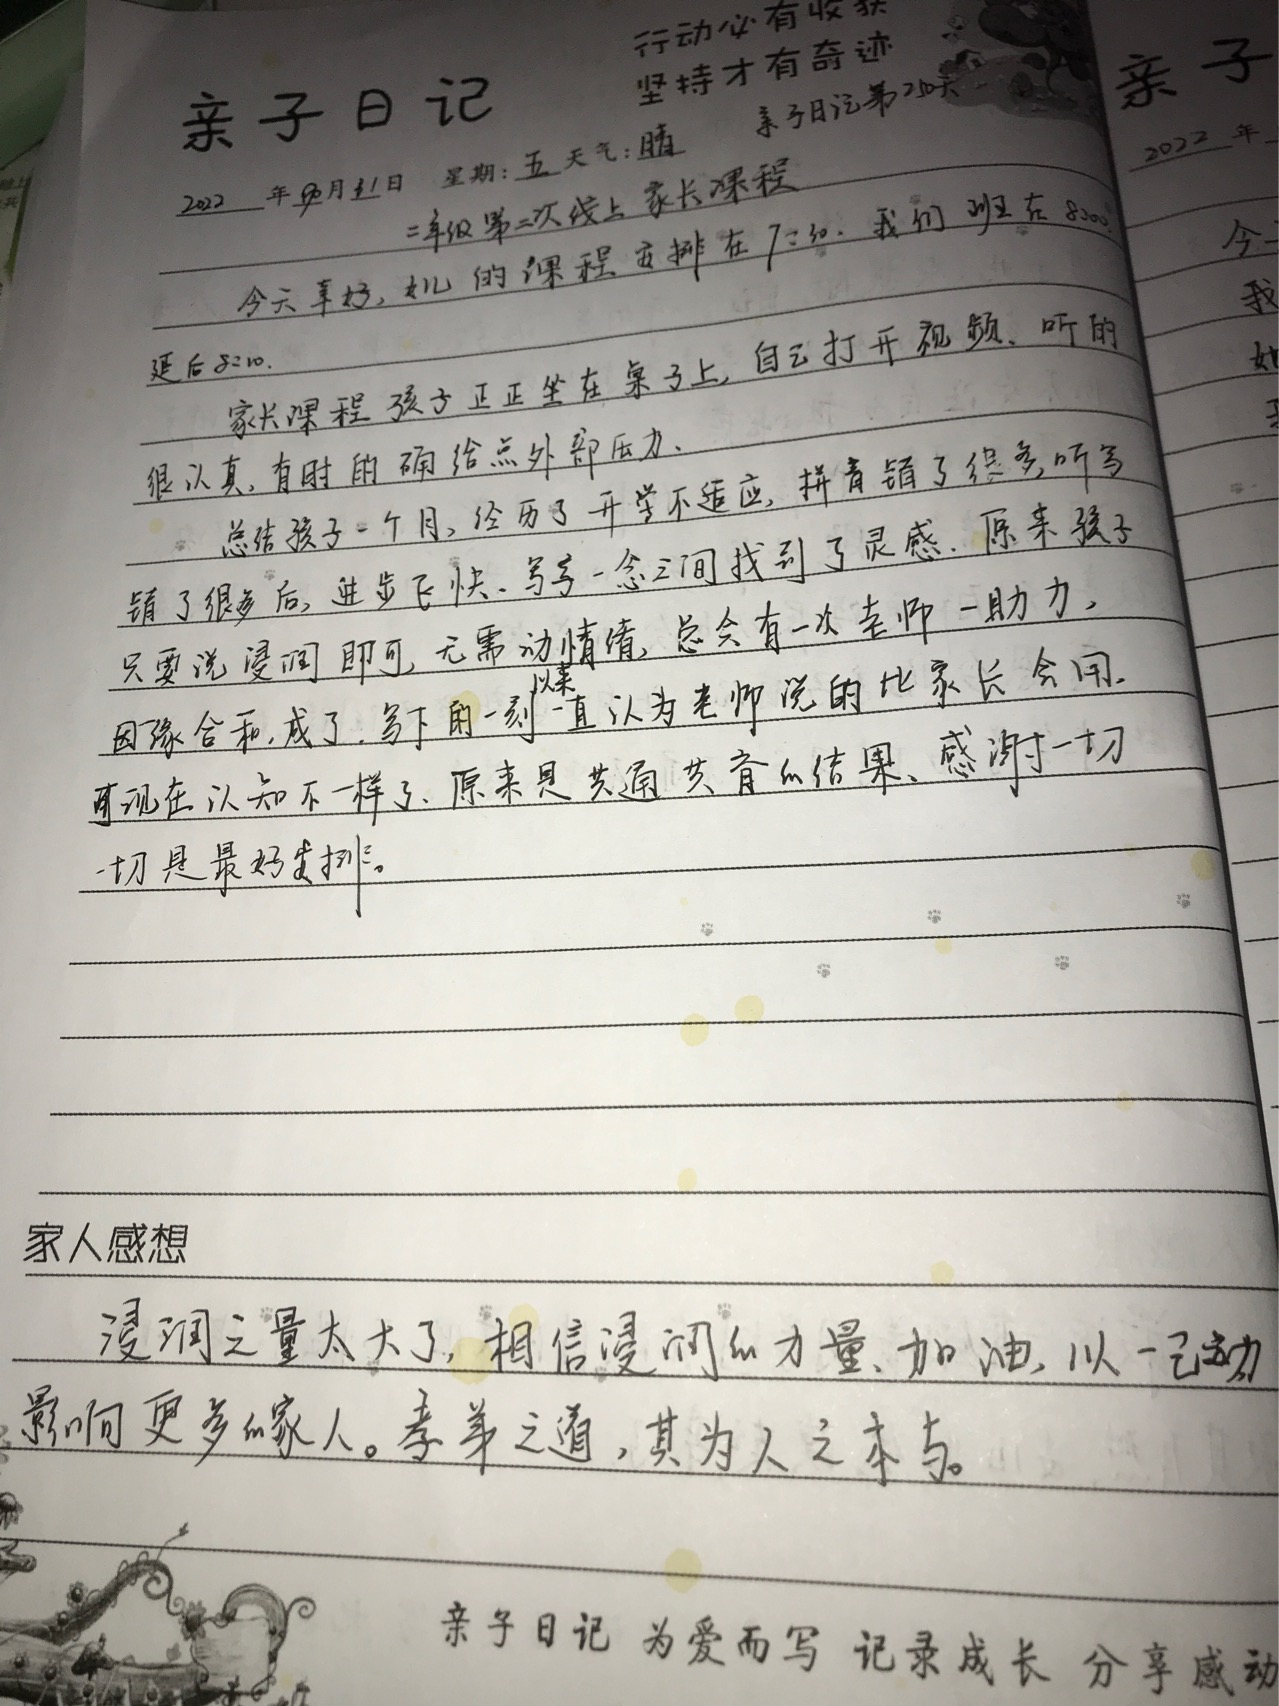 行动必有收获
坚持才有奇迹
亲子日记
亲子日记第210天
2022 年 月 31 日 星期：五 天气：晴
二年级第二次线上家长课程
今天幸好，女儿的课程安排在7:30. 我们班在8:00.
延后8:10.
家长课程孩子正正坐在桌子上，自己打开视频、听的
很认真，有时的确给点外部压力.
总结孩子一个月，经历了开学不适应，拼音错了很多，听写
错了很多后，进步飞快、写字一念之间找到了灵感. 原来孩子
只要说浸润即可，无需动情绪，总会有一次老师一助力，
因缘合和，成了. 写下的一刻以来一直认为老师说的比家长会用.
可现在认知不一样了、原来是共通共育的结果、感谢一切
一切是最好安排。
家人感想
浸润之量太大了，相信浸润的力量、加油，以一己之力
影响更多的家人。孝弟之道，其为人之本与。
亲子日记 为爱而写 记录成长 分享感动
亲子
2022 年
今
我
她